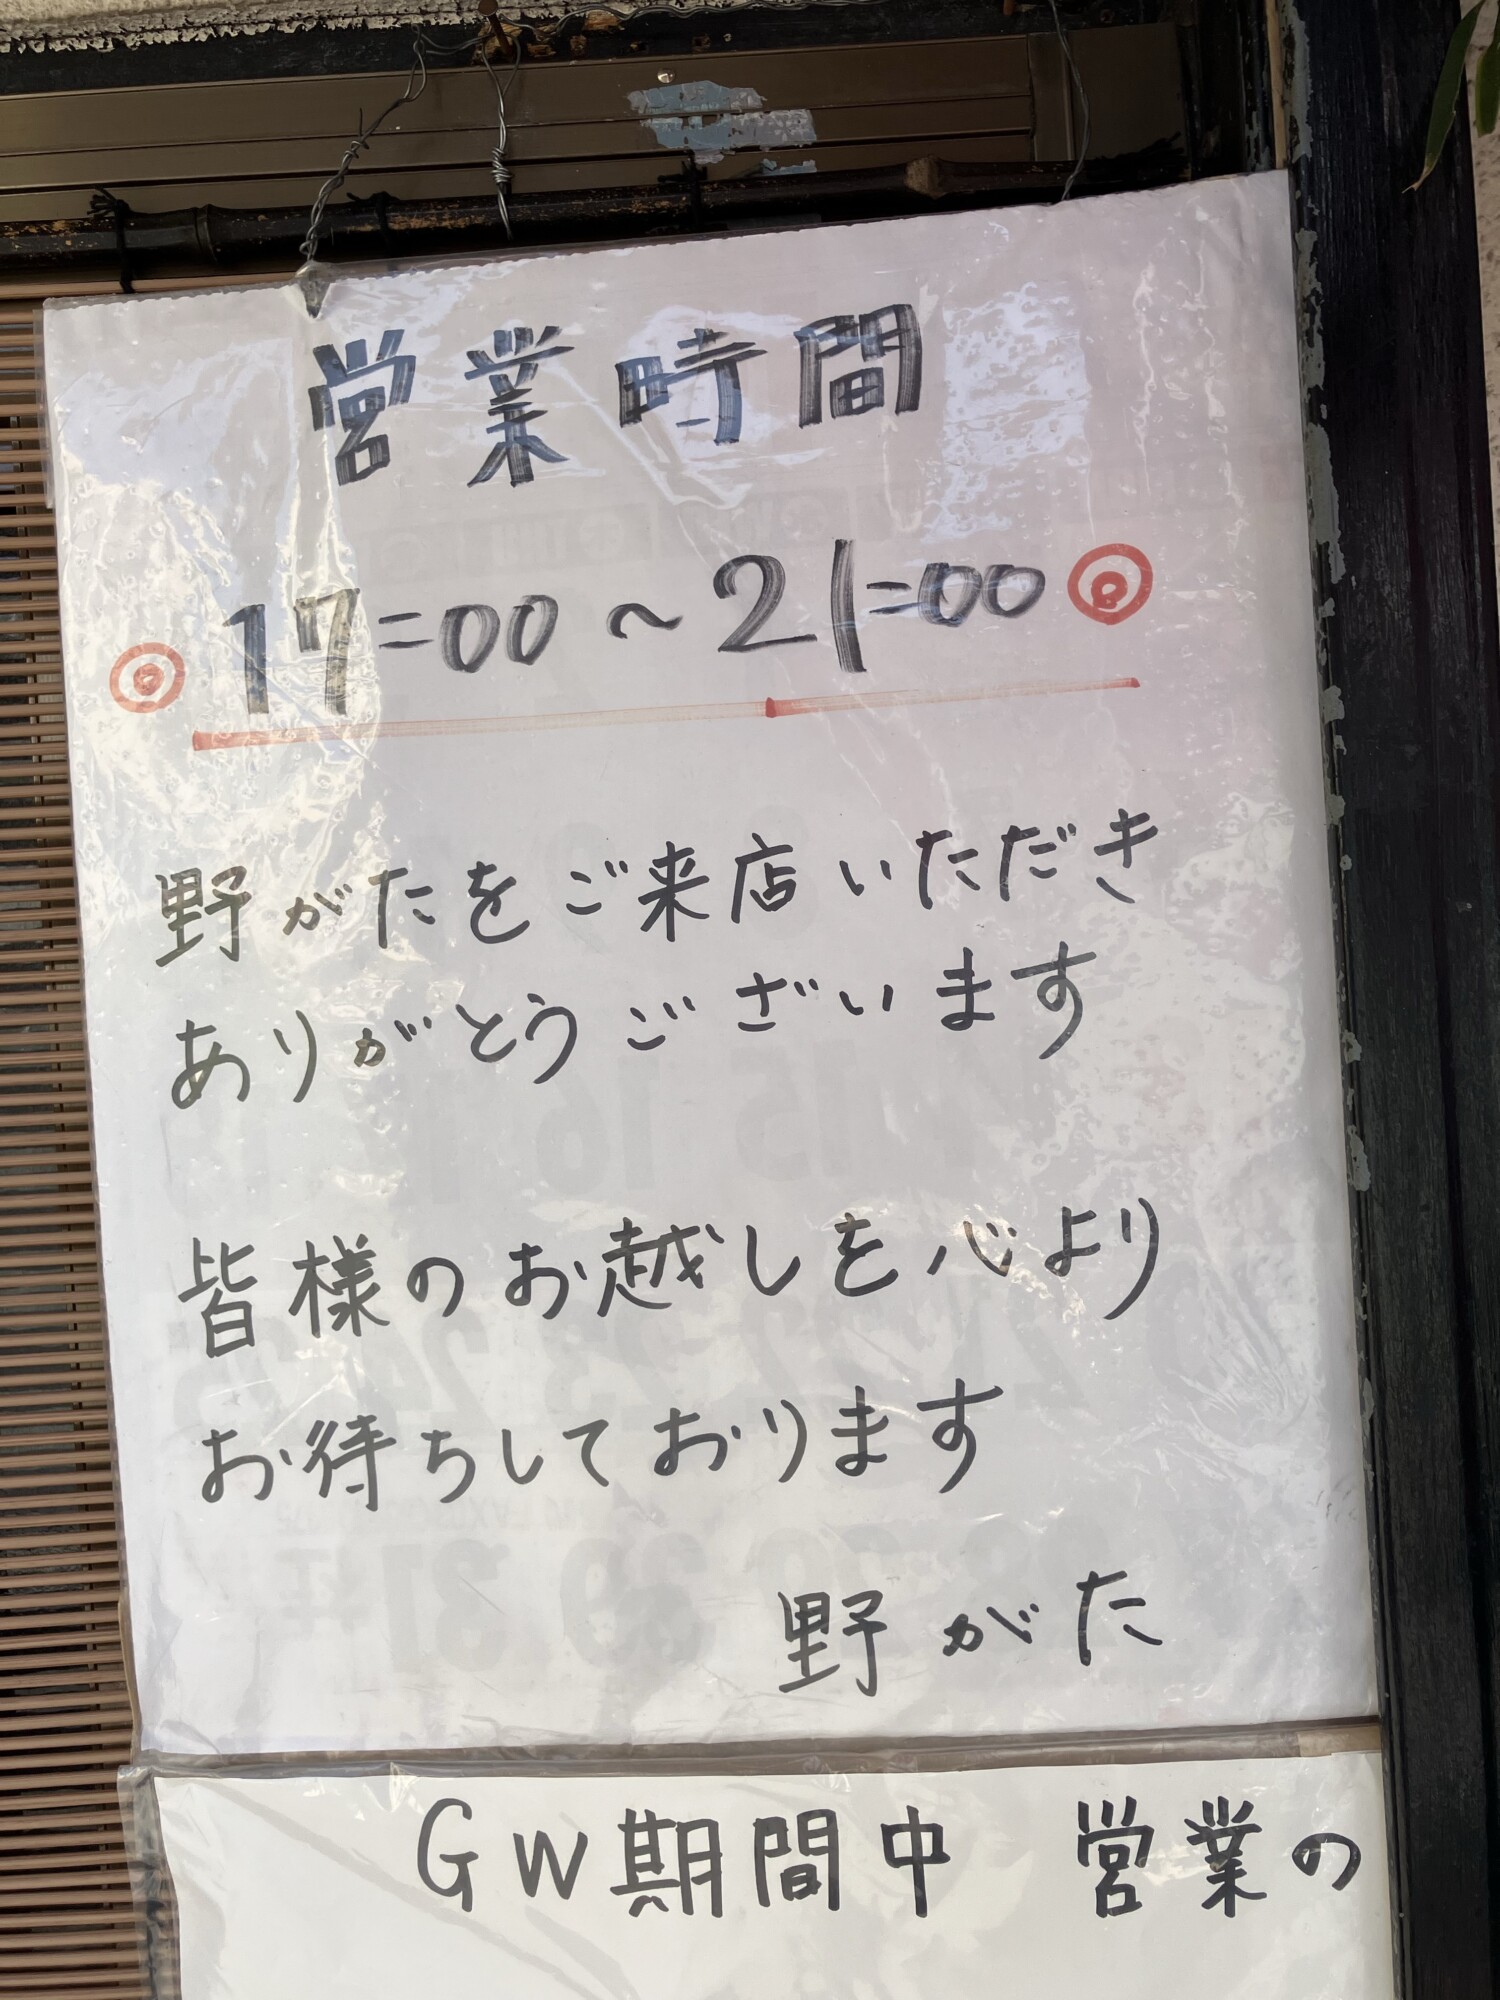 営業時間
◎ 17=00 ~ 21=00 ◎
野がたをご来店いただき
ありがとうございます
皆様のお越しを心より
お待ちしております
野がた
GW期間中 営業の